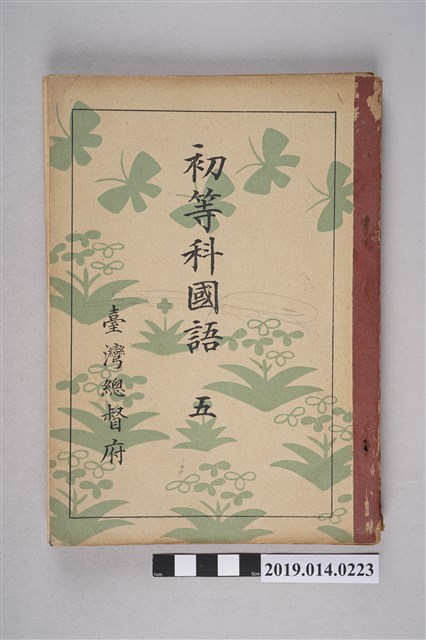 初等科國語 五
臺灣總督府
2019.014.0223